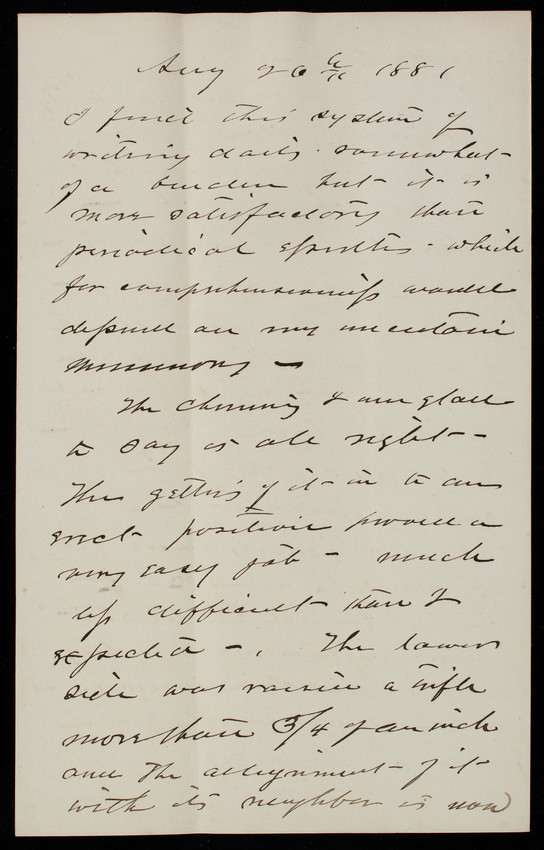 Aug 26th 1881
I find this system of
writing daily somewhat
of a burden but it is
more satisfactory than
periodical epistles - which
for comprehensiveness would
depend on my uncertain
memory -
The chimney I am glad
to say is all right -
The getting of it in to an
erect position proved a
very easy job - much
less difficult than I
expected - . The lower
side was raised a trifle
more than 3/4 of an inch
and the allignment of it
with its neighbor is now